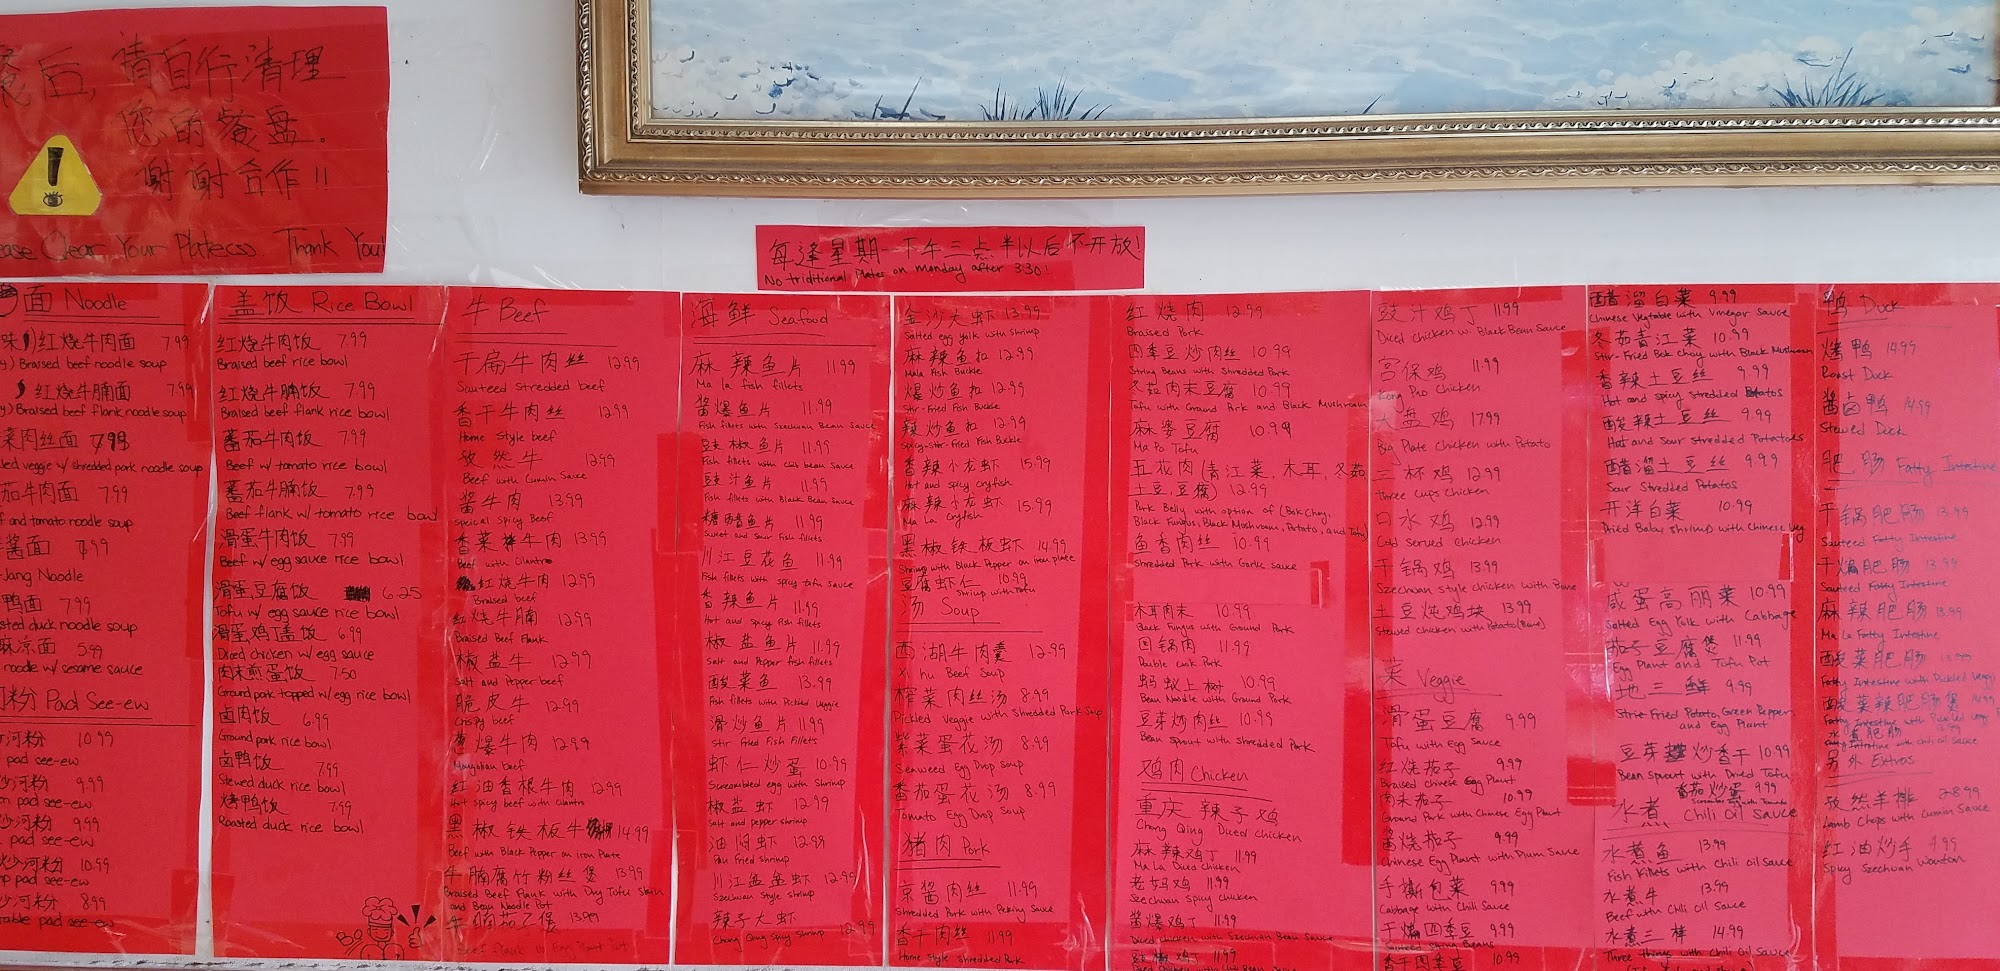 餐后,请自行清理
您的餐盘。
谢谢合作!!
ease Clear Your Platecss Thank You!
每逢星期一下午三点半以后不开放!
No triditional Plates on monday after 3:30!
面 Noodle
味)红烧牛肉面 7.99
y) Braised beef noodle soup
红烧牛腩面 7.99
y) Braised beef flank noodle soup
菜肉丝面 7.99
led veggie w/ shredded pork noodle soup
茄牛肉面 7.99
f and tomato noodle soup
酱面 7.99
-Jang Noodle
鸭面 7.99
sted duck noodle soup
麻凉面 5.99
noodle w/ sesame sauce
粉 Pad See-ew
河粉 10.99
pad see-ew
沙河粉 9.99
en pad see-ew
沙河粉 9.99
pad see-ew
炒河粉 10.99
mp pad see-ew
沙河粉 8.99
table pad see-ew
盖饭 Rice Bowl
红烧牛肉饭 7.99
Braised beef rice bowl
红烧牛腩饭 7.99
Braised beef flank rice bowl
蕃茄牛肉饭 7.99
Beef w/ tomato rice bowl
蕃茄牛腩饭 7.99
Beef flank w/ tomato rice bowl
滑蛋牛肉饭 7.99
Beef w/ egg sauce rice bowl
滑蛋豆腐饭 6.25
Tofu w/ egg sauce rice bowl
滑蛋鸡丁盖饭 6.99
Diced chicken w/ egg sauce
肉末煎蛋饭 7.50
Ground pork topped w/ egg rice bowl
卤肉饭 6.99
Ground pork rice bowl
卤鸭饭 7.99
Stewed duck rice bowl
烤鸭饭 7.99
Roasted duck rice bowl
牛 Beef
干扁牛肉丝 12.99
Sauteed Stredded beef
香干牛肉丝 12.99
Home Style beef
孜然牛 12.99
Beef with Cumin Sauce
酱牛肉 13.99
speical spicy Beef
香菜拌牛肉 13.99
Beef with Cilantro
红烧牛肉 12.99
Braised beef
红烧牛腩 12.99
Braised Beef Flank
椒盐牛 12.99
Salt and Pepper beef
脆皮牛 12.99
Crispy beef
葱爆牛肉 12.99
Mongolian beef
红油香根牛肉 12.99
Hot spicy beef with Cilantro
黑椒铁板牛 14.99
Beef with Black Pepper on Iron Plate
牛腩腐竹粉丝煲 13.99
Braised Beef Flank with Dry Tofu Skin
and Bean Noodle Pot
牛腩茄子煲 13.99
海鲜 Seafood
麻辣鱼片 11.99
Ma la fish fillets
酱爆鱼片 11.99
Fish fillets with Szechuan Bean Sauce
豉椒鱼片 11.99
Fish fillets with chili bean Sauce
豉汁鱼片 11.99
Fish fillets with Black Bean Sauce
糖醋鱼片 11.99
Sweet and Sour Fish fillets
川江豆花鱼 11.99
Fish fillets with spicy tofu Sauce
香辣鱼片 11.99
Hot and spicy Fish fillets
椒盐鱼片 11.99
Salt and Pepper fish fillets
酸菜鱼 13.99
Fish fillets with Pickled Veggie
滑炒鱼片 11.99
Stir Fried Fish Fillets
虾仁炒蛋 10.99
Scrambled egg with Shrimp
椒盐虾 12.99
Salt and pepper shrimp
油焖虾 12.99
Pan Fried Shrimp
川江盆盆虾 12.99
Szechuan Style shrimp
辣子大虾 12.99
Chong Qing Spicy shrimp
金沙大虾 13.99
Salted egg yolk with Shrimp
麻辣鱼扣 12.99
Mala Fish Buckle
爆炒鱼扣 12.99
Stir-Fried Fish Buckle
辣炒鱼扣 12.99
Spicy-stir-Fried Fish Buckle
香辣小龙虾 15.99
Hot and spicy crayfish
麻辣小龙虾 15.99
Ma La Crayfish
黑椒铁板虾 14.99
Shrimp with Black Pepper on iron plate
豆腐虾仁 10.99
Shrimp with Tofu
汤 Soup
西湖牛肉羹 12.99
Xi hu Beef Soup
榨菜肉丝汤 8.99
Pickled Veggie with Shredded Pork Soup
紫菜蛋花汤 8.99
Seaweed Egg Drop Soup
番茄蛋花汤 8.99
Tomato Egg Drop Soup
猪肉 Pork
京酱肉丝 11.99
Shredded Pork with Peking Sauce
香干肉丝 11.99
Home Style shredded Pork
红烧肉 12.99
Braised Pork
四季豆炒肉丝 10.99
String Beans with Shredded Pork
冬菇肉末豆腐 10.99
Tofu with Ground Pork and Black Mushroom
麻婆豆腐 10.99
Ma Po Tofu
五花肉(青江菜,木耳,冬菇,
土豆,豆腐) 12.99
Pork Belly with option of (Bok Choy,
Black Fungus, Black Mushroom, Potato, and Tofu)
鱼香肉丝 10.99
Shredded Pork with Garlic sauce
木耳肉末 10.99
Black Fungus with Ground Pork
回锅肉 11.99
Double Cook Pork
蚂蚁上树 10.99
Bean Noodle with Ground Pork
豆芽炒肉丝 10.99
Bean sprout with Shredded Pork
鸡肉 Chicken
重庆辣子鸡
Chong Qing Diced chicken
麻辣鸡丁 11.99
Ma La Diced Chicken
老妈鸡 11.99
Szechuan Spicy chicken
酱爆鸡丁 11.99
Diced chicken with Szechuan Bean Sauce
豉椒鸡丁 11.99
豉汁鸡丁 11.99
Diced chicken w. Black Bean Sauce
宫保鸡 11.99
Kong Pao Chicken
大盘鸡 17.99
Big Plate Chicken with Potato
三杯鸡 12.99
Three Cups Chicken
口水鸡 12.99
Cold Served chicken
干锅鸡 13.99
Szechuan style Chicken with Bone
土豆炖鸡块 13.99
Stewed chicken with Potato(Bone)
菜 Veggie
滑蛋豆腐 9.99
Tofu with Egg Sauce
红烧茄子 9.99
Braised Chinese Egg Plant
肉末茄子 10.99
Ground Pork with Chinese Egg Plant
酱烧茄子 9.99
Chinese Egg Plant with Plum Sauce
手撕包菜 9.99
Cabbage with Chili Sauce
干煸四季豆 9.99
Sauteed String Beans
香干四季豆 10.99
醋溜白菜 9.99
Chinese Vegtable with Vinegar Sauce
冬茹青江菜 10.99
Stir-Fried Bok choy with Black Mushroom
香辣土豆丝 9.99
Hot and spicy Stredded Potatos
酸辣土豆丝 9.99
Hot and Sour Stredded Potatoes
醋溜土豆丝 9.99
Sour Stredded Potatos
开洋白菜 10.99
Dried Baby shrimp with Chinese Veg
咸蛋高丽菜 10.99
Salted Egg Yolk with Cabbage
茄子豆腐煲 11.99
Egg Plant and Tofu Pot
地三鲜 9.99
Stire Fried Potato, Green Pepper,
and Egg Plant
豆芽炒香干 10.99
Bean Sprout with Dried Tofu
番茄炒蛋 9.99
水煮 Chili Oil Sauce
水煮鱼 13.99
Fish Fillets with Chili oil Sauce
水煮牛 13.99
Beef with Chili Oil Sauce
水煮三样 14.99
Three Things with Chili Oil Sauce
鸭 Duck
烤鸭 14.99
Roast Duck
酱卤鸭 14.99
Stewed Duck
肥肠 Fatty Intestine
干锅肥肠 13.99
Sauteed Fatty Intestine
干煸肥肠 13.99
Sauteed Fatty Intestine
麻辣肥肠 13.99
Ma La Fatty Intestine
酸菜肥肠 13.99
Fatty Intestine with Pickled Veggie
酸菜辣肥肠煲 14.99
水煮肥肠
另外 Extras
孜然羊排 28.99
Lamb Chops with Cumin Sauce
红油炒手 8.99
Spicy Szechuan Wonton